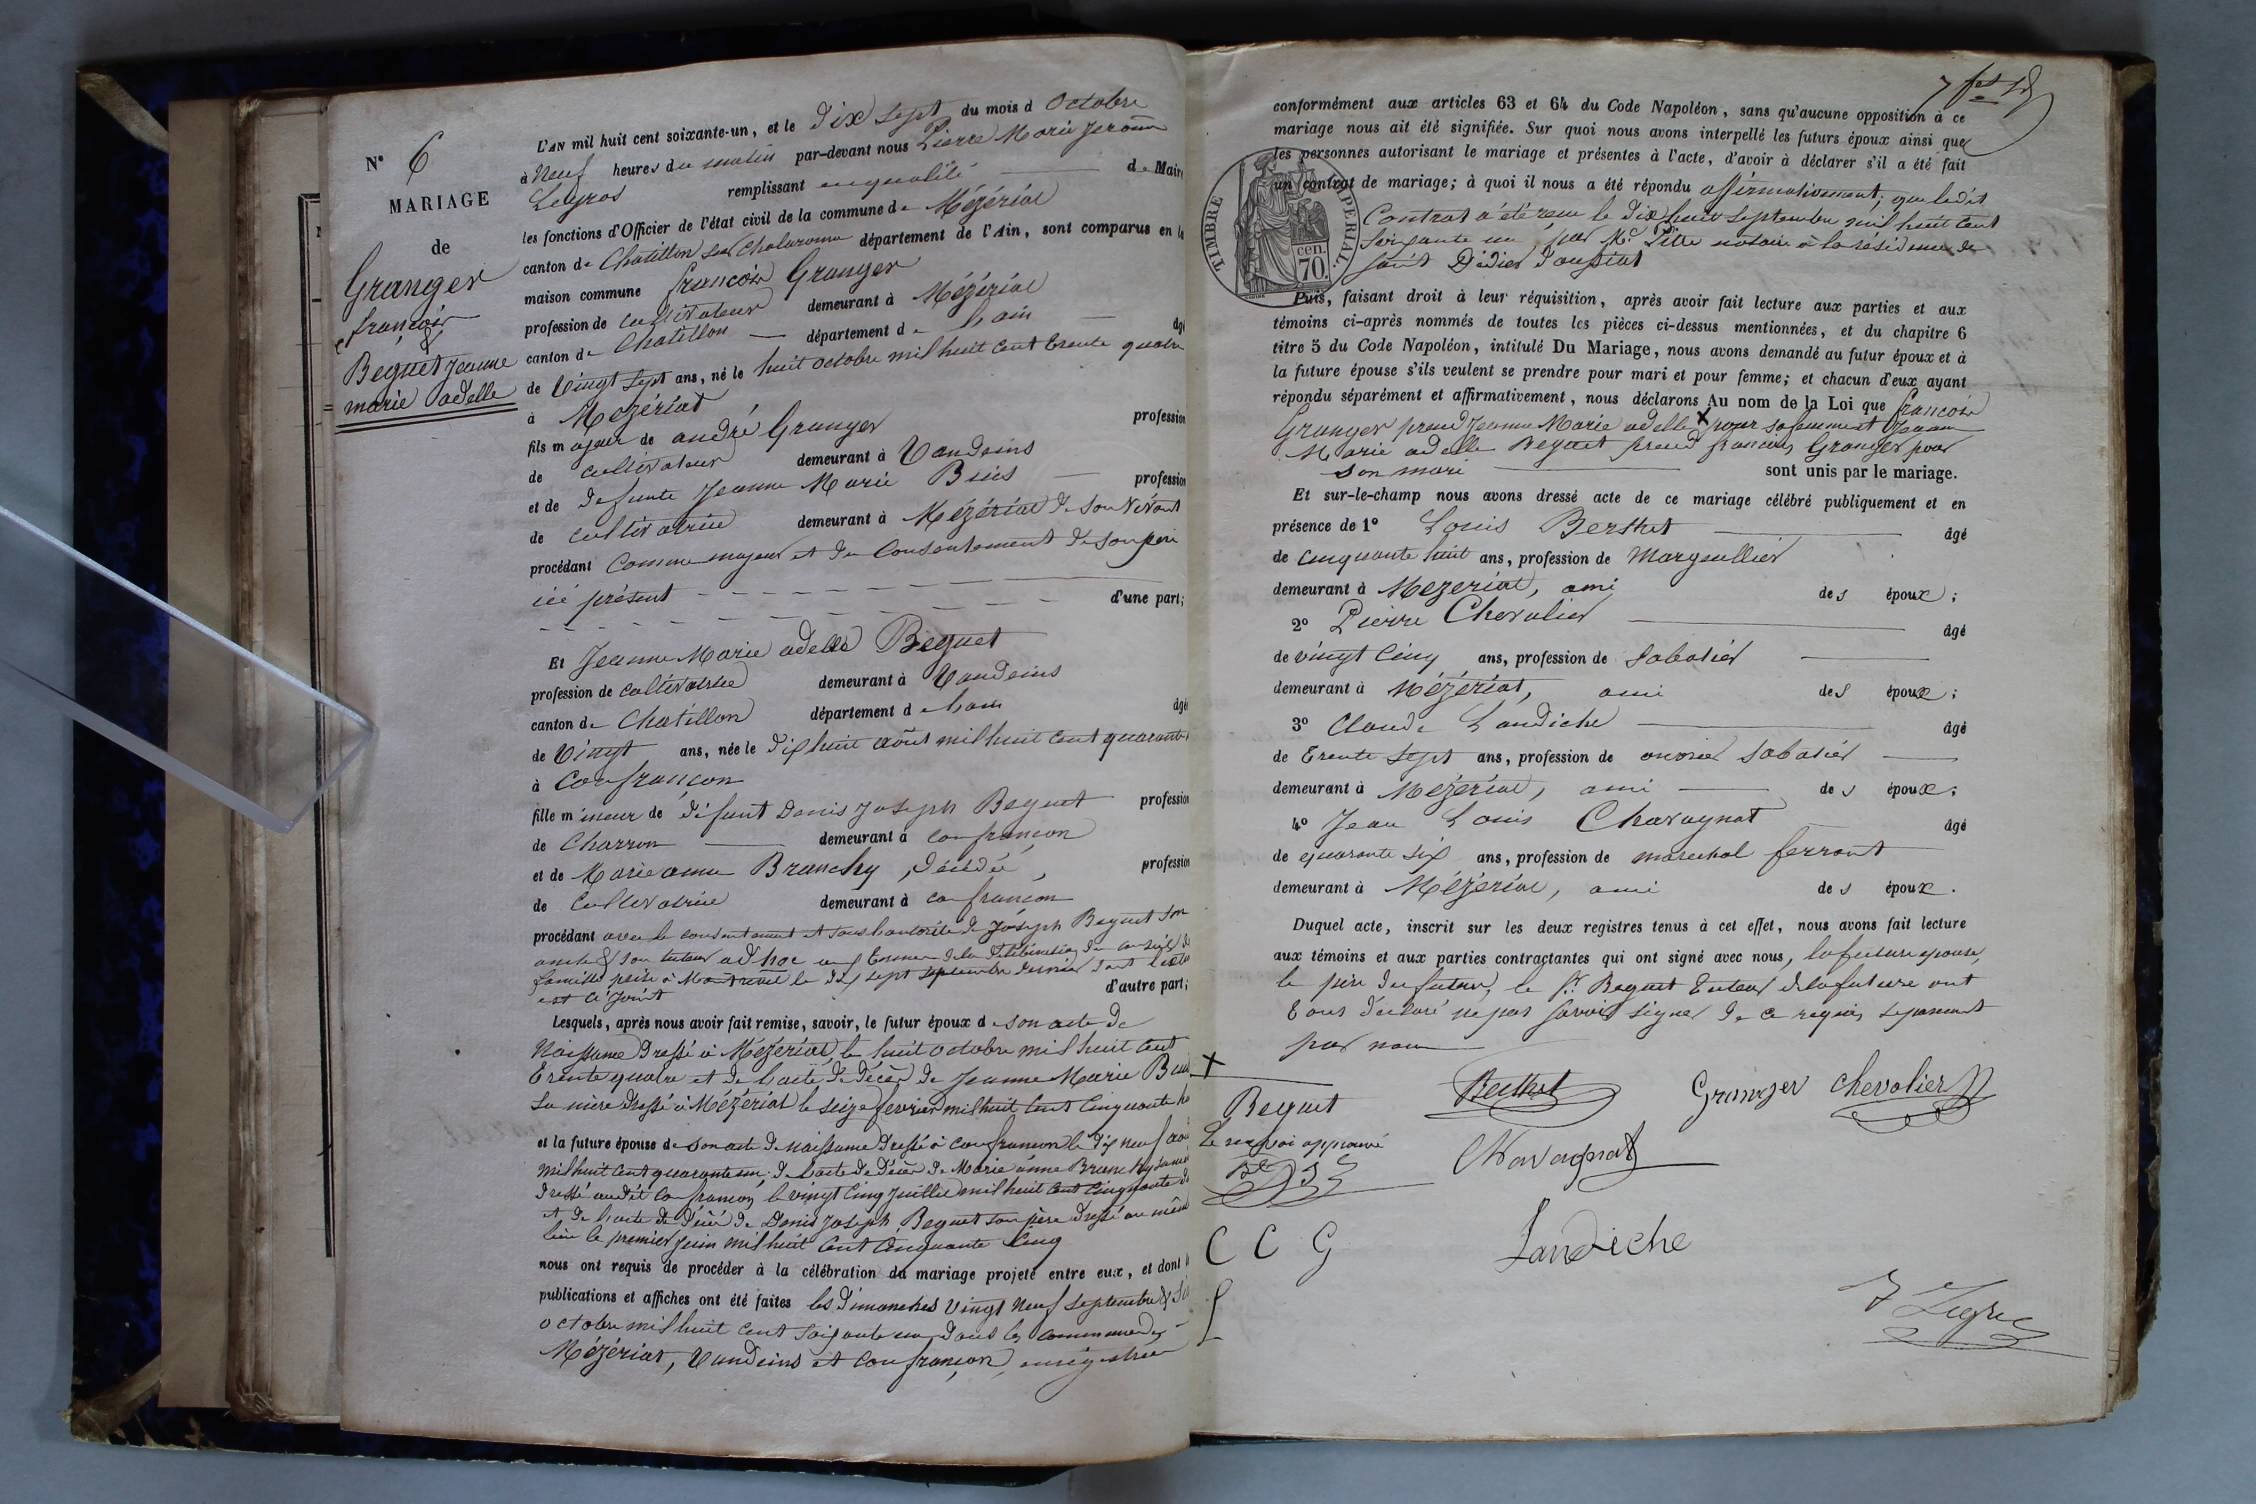 N° 6
MARIAGE
de
Granger
françois
&
Beguet Jeanne
marie adelle
L'AN mil huit cent soixante-un, et le Dix Sept du mois d Octobre
à Neuf heures du matin par-devant nous Pierre Marie Jerôme
Legros remplissant en qualité de Maire
les fonctions d'Officier de l'état civil de la commune de Mézériat
canton de Chatillon sur Chalaronne département de l'Ain, sont comparus en la
maison commune françois Granger
profession de cultivateur demeurant à Mézériat
canton de Chatillon département de Lain âgé
de Vingt Sept ans, né le huit octobre mil huit Cent trente quatre
à Mezériat
fils majeur de andré Granger profession
de cultivateur demeurant à Vandeins
et de defunte Jeanne Marie Buis profession
de cultivatrice demeurant à Mézériat de son Vivant
procédant Comme majeur et du Consentement de son père
ici présent d'une part;
Et Jeanne Marie adelle Beguet
profession de cultivatrice demeurant à Vandeins
canton de Chatillon département de Lain âgée
de Vingt ans, née le dix huit août mil huit Cent quarante
à Confrançon
fille mineur de défunt Denis Joseph Beguet profession
de Charron demeurant à confrançon
et de Marie anne Branchy, décédée, profession
de Cultivatrice demeurant à confrançon
procédant avec le consentement et sous l'autorité de Joseph Beguet son
oncle & son tuteur ad hoc en Terme de la Délibération du conseil de
famille prise à Montrevel le dix sept septembre dernier dont l'acte
est ci Joint d'autre part;
Lesquels, après nous avoir fait remise, savoir, le futur époux de son acte de
Naissance Dressé à Mézériat le huit octobre mil huit Cent
Trente quatre et de l'acte de Décès de Jeanne Marie Buis
Sa mère Dressé à Mézériat le seize fevrier mil huit Cent Cinquante
et la future épouse de son acte de naissance Dressé à confrançon le dix neuf août
mil huit Cent quarante un; de l'acte de Décès de Marie anne Branchy sa mère
Dressé audit confrançon le vingt Cinq Juillet mil huit Cent Cinquante
et de l'acte de Décès de Denis Joseph Beguet son père Dressé au même
lieu le premier Juin mil huit Cent Cinquante Cinq
nous ont requis de procéder à la célébration du mariage projeté entre eux, et dont
publications et affiches ont été faites les Dimanches Vingt Neuf Septembre & Six
octobre mil huit cent Soixante un dans les communes de
Mézériat, Vandeins et Confrançon, enregistrées
7 fes
TIMBRE IMPERIAL
70 cen.
conformément aux articles 63 et 64 du Code Napoléon, sans qu'aucune opposition à ce
mariage nous ait été signifiée. Sur quoi nous avons interpellé les futurs époux ainsi que
les personnes autorisant le mariage et présentes à l'acte, d'avoir à déclarer s'il a été fait
un contrat de mariage; à quoi il nous a été répondu affirmativement; que ledit
Contrat a été reçu le Dix huit Septembre mil huit Cent
Soixante un, par Me Pitre notaire à la résidence de
Saint Didier d'aussiat
Puis, faisant droit à leur réquisition, après avoir fait lecture aux parties et aux
témoins ci-après nommés de toutes les pièces ci-dessus mentionnées, et du chapitre 6
titre 5 du Code Napoléon, intitulé Du Mariage, nous avons demandé au futur époux et à
la future épouse s'ils veulent se prendre pour mari et pour femme; et chacun d'eux ayant
répondu séparément et affirmativement, nous déclarons Au nom de la Loi que françois
Granger prend Jeanne Marie adelle X pour sa femme et Jeanne
Marie adelle Beguet prend francois Granger pour
son mari sont unis par le mariage.
Et sur-le-champ nous avons dressé acte de ce mariage célébré publiquement et en
présence de 1° Louis Berthet âgé
de cinquante huit ans, profession de Marguillier
demeurant à Mezeriat, ami des époux;
2° Pierre Chevalier âgé
de vingt Cinq ans, profession de Sabotier
demeurant à Mézériat, ami des époux;
3° Claude Landiche âgé
de Trente Sept ans, profession de ouvrier Sabotier
demeurant à Mézériat, ami des époux;
4° Jean Louis Chavagnat âgé
de quarante six ans, profession de marechal ferrant
demeurant à Mézériat, ami des époux.
Duquel acte, inscrit sur les deux registres tenus à cet effet, nous avons fait lecture
aux témoins et aux parties contractantes qui ont signé avec nous, la future épouse,
le père du futur, le Sr Beguet Tuteur de la future ont
Tous déclaré ne pas savoir signer de ce requis séparement
par nous
X
Beguet
Le renvoi approuvé
Berthet
Granger
chevalier
Chavagnat
C C G
Landiche
L
Legros